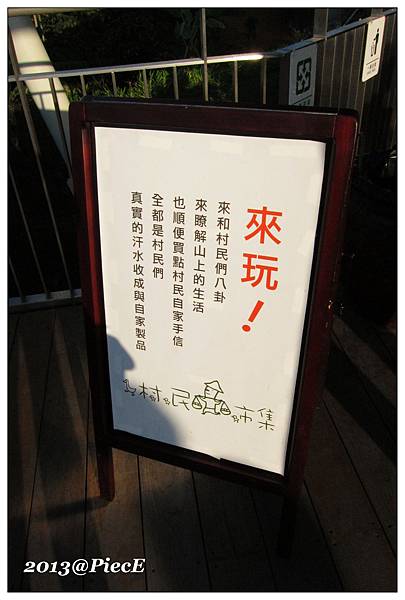 來玩！
來和村民們八卦
來瞭解山上的生活
也順便買點村民自家手信
全都是村民們
真實的汗水收成與自家製品
村民市集
2013@PiecE